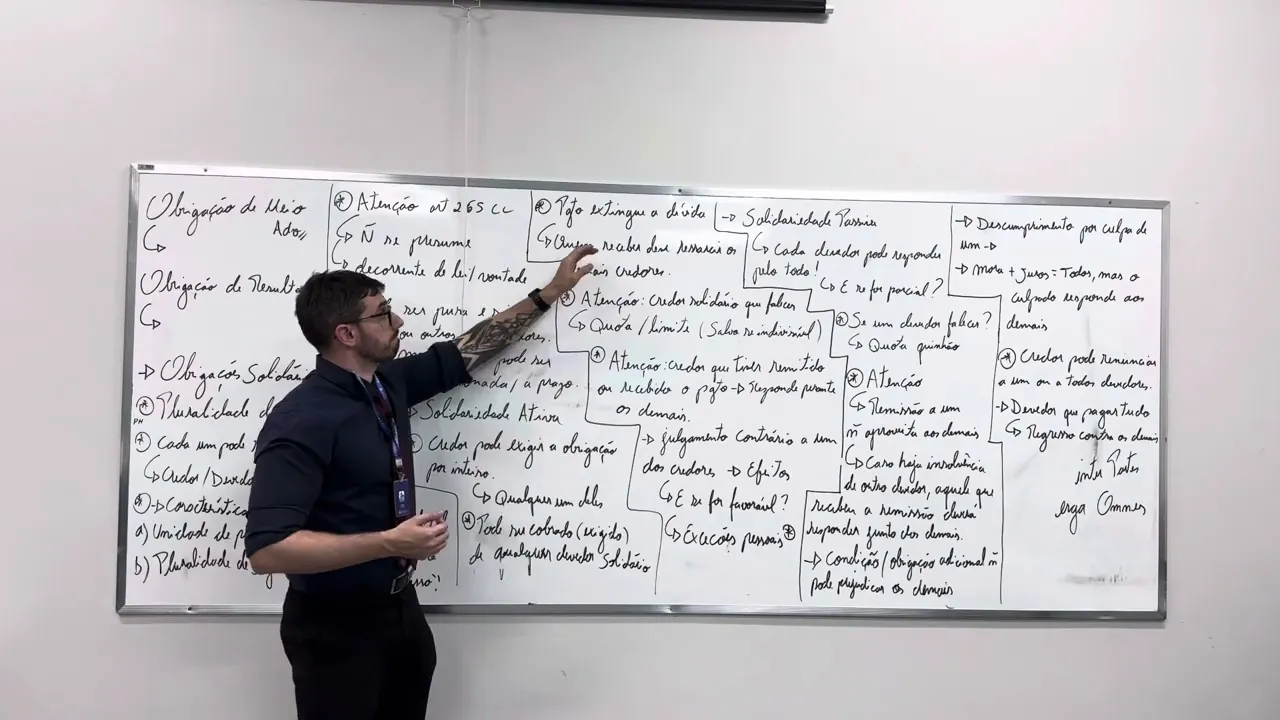 Obrigação de Meio
Adv,,
↳
Obrigação de Result
↳
→ Obrigações Solidári
⊛ Pluralidade d
PH
cada um pode
↳ Credor/Deved
⊛→ Característica
a) Unidade de p
b) Pluralidade de
⊛ Atenção art 265 CC
↳ Ñ se presume
↳ decorrente de lei/vontade
ser pura e s
ou outros
pode ser
/a prazo.
→ Solidariedade Ativa
Credor pode exigir a obrigação
por inteiro.
↳ Qualquer um deles
⊛ Pode ser cobrado (exigido)
de qualquer devedor Solidário
⊛ Pgto extingue a dívida
↳ Quem receber deve ressarcir os
ais credores.
⊛ Atenção: credor solidário que falecer
↳ Quota/limite (Salvo se indivisível)
⊛ Atenção: credor que tiver remitido
ou recebido o pgto → Responde perante
os demais.
→ julgamento contrário a um
dos credores → Efeitos
↳ E se for favorável?
↳ Exceções pessoais ⊛
→ Solidariedade Passiva
↳ Cada devedor pode responder
pelo todo!
↳ E se for parcial?
⊛ Se um devedor falecer?
↳ Quota quinhão
⊛ Atenção
↳ Remissão a um
ñ aproveita aos demais
↳ Caso haja insolvência
de outro devedor, aquele que
recebeu a remissão deverá
responder junto dos demais.
→ Condição/obrigação adicional ñ
pode prejudicar os demais
→ Descumprimento por culpa de
um →
→ mora + juros = Todos, mas o
culpado responde aos
demais
⊛ Credor pode renunciar
a um ou a todos devedores.
→ Devedor que pagar tudo
↳ Regresso contra os demais
inter Partes
erga Omnes